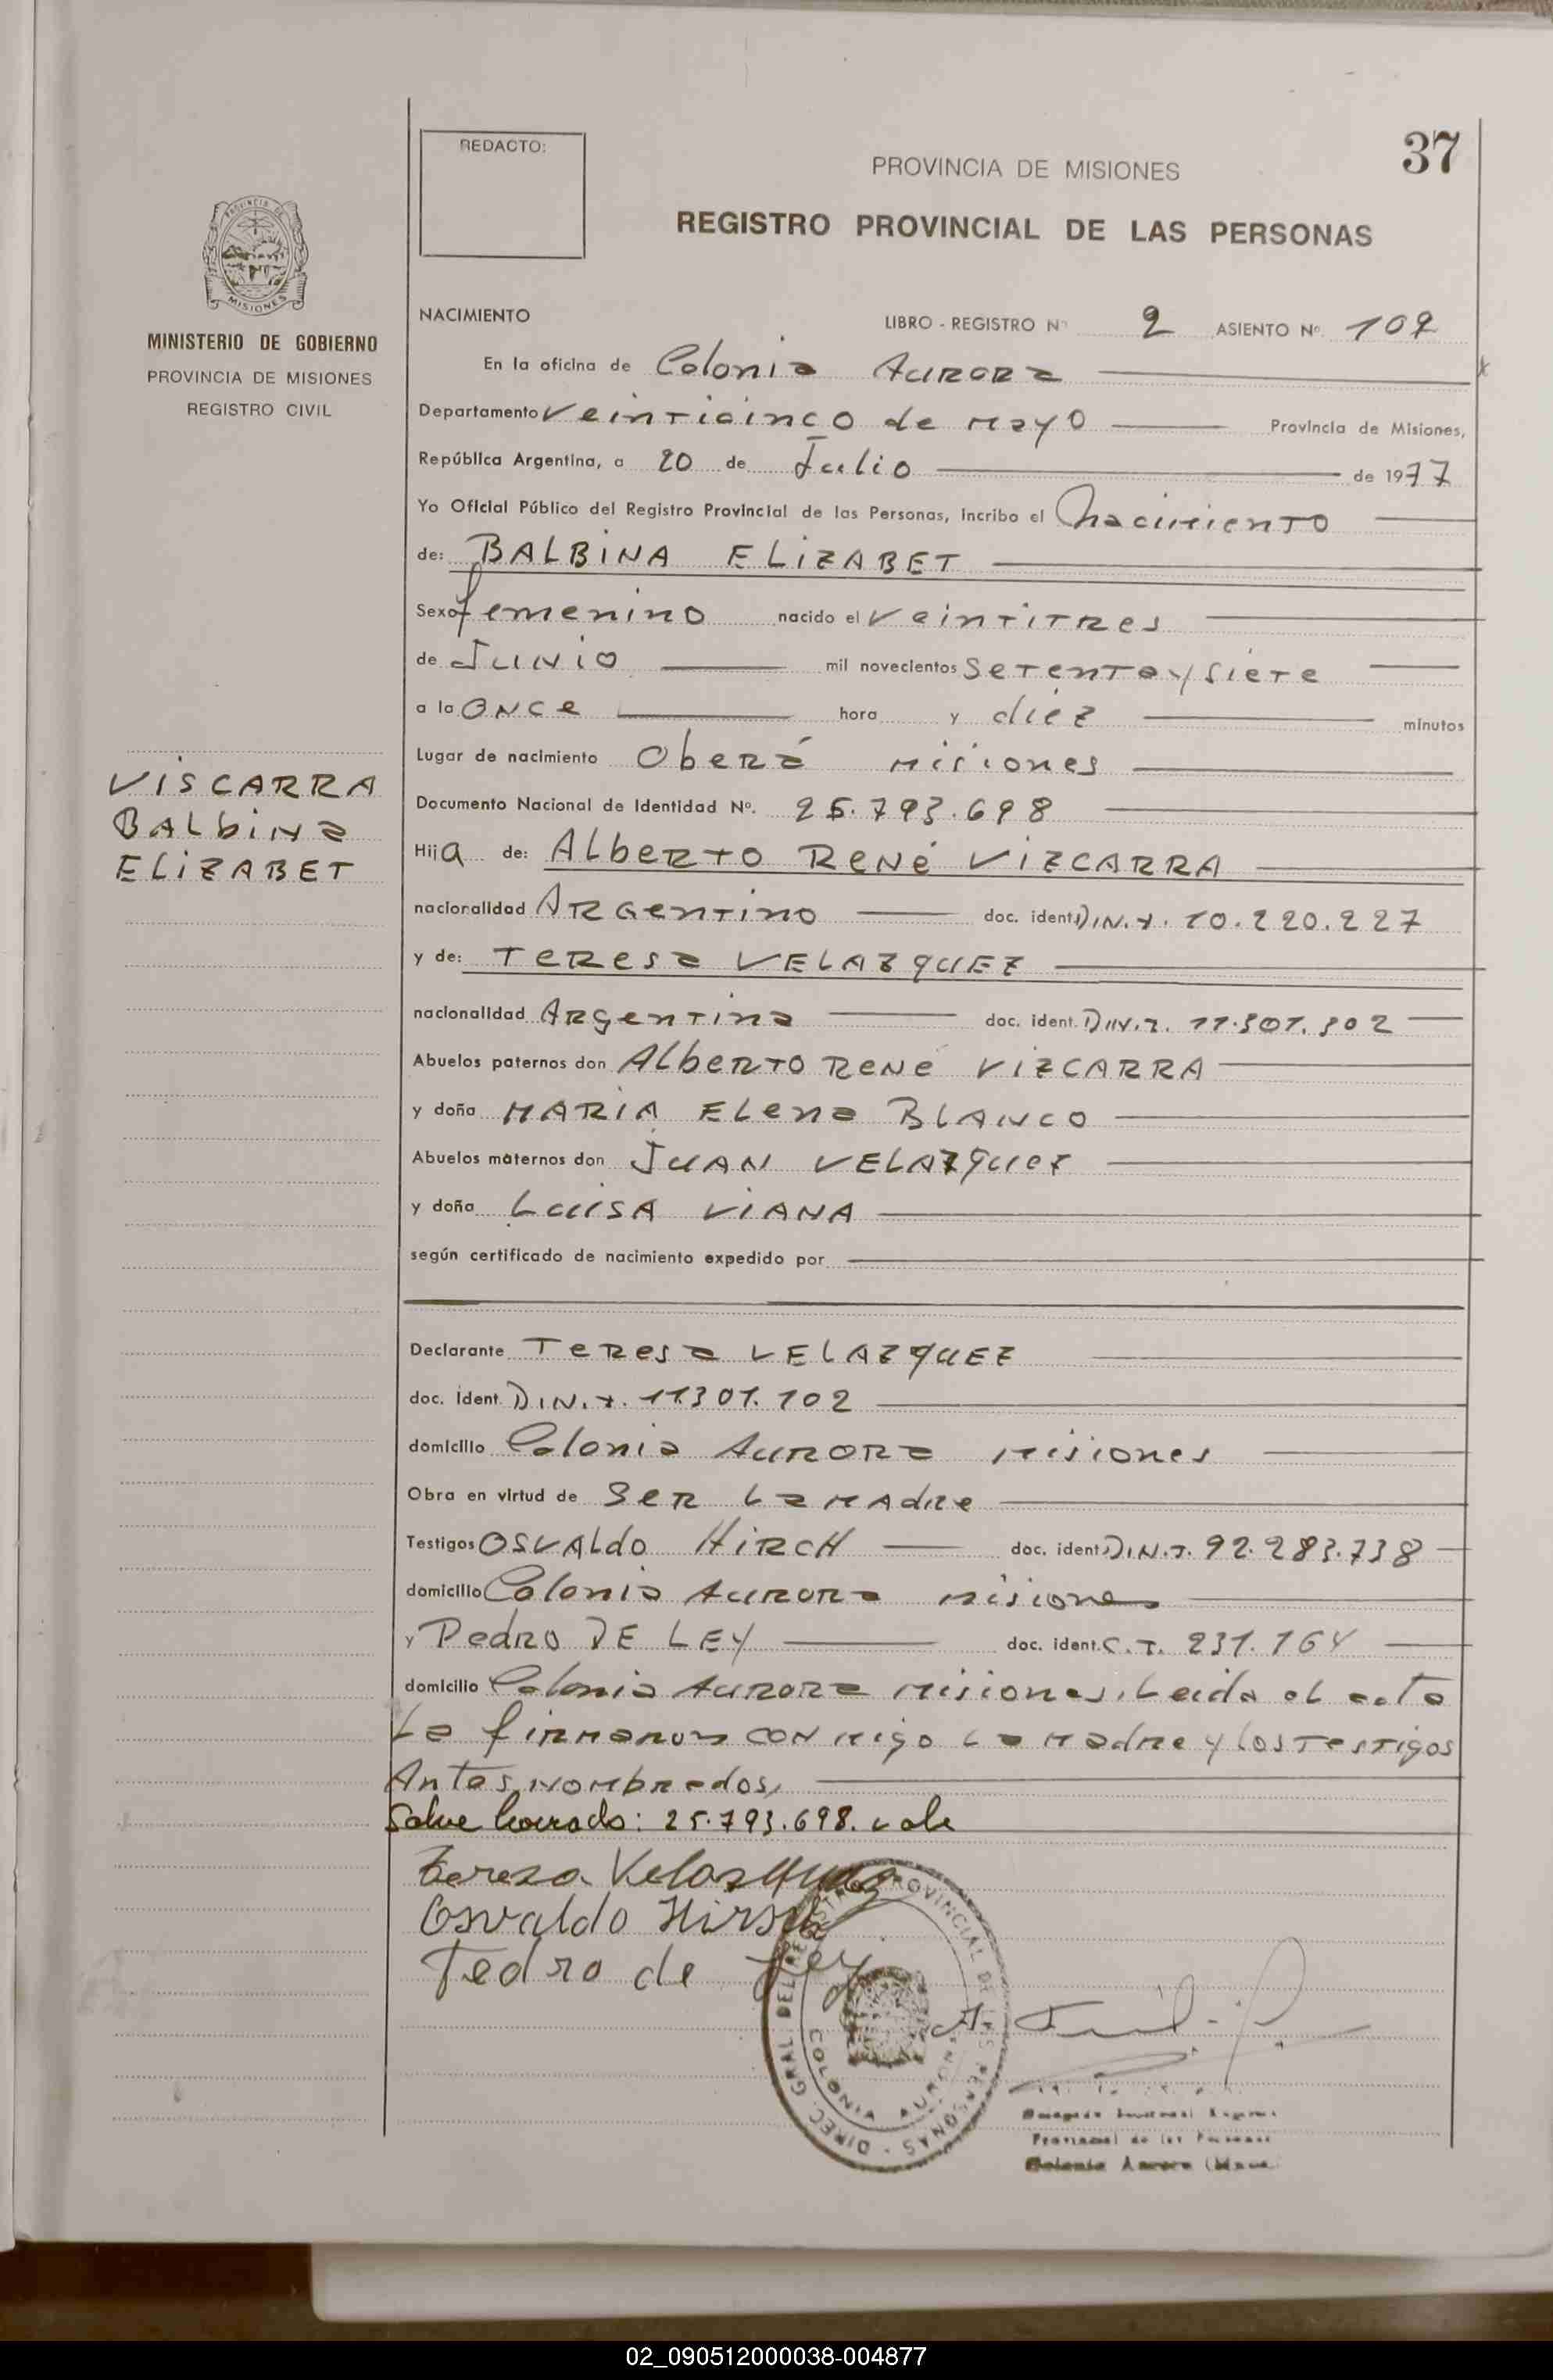 REDACTO:
PROVINCIA DE MISIONES
37
REGISTRO PROVINCIAL DE LAS PERSONAS
PROVINCIA DE
MISIONES
MINISTERIO DE GOBIERNO
PROVINCIA DE MISIONES
REGISTRO CIVIL
NACIMIENTO LIBRO - REGISTRO Nº 2 ASIENTO Nº 109
En la oficina de Colonia AURORA
Departamento Veinticinco de Mayo Provincia de Misiones,
República Argentina, a 20 de Julio de 1977
Yo Oficial Público del Registro Provincial de las Personas, incribo el Nacimiento
de: BALBINA ELIZABET
Sexo femenino nacido el Veintitres
de JUNIO mil novecientos Setenta y Siete
a la ONCE hora y diez minutos
Lugar de nacimiento Oberá Misiones
VISCARRA
BALbina
ELIZABET
Documento Nacional de Identidad Nº. 25.793.698
Hija de: ALberto René VIZCARRA
nacionalidad ARGentino doc. ident. D.N.I. 10.220.227
y de: Teresa VELAZQUEZ
nacionalidad Argentina doc. ident. D.N.I. 11.301.102
Abuelos paternos don ALberto René VIZCARRA
y doña MARIA ELena BLANCO
Abuelos maternos don JUAN VELAZQuez
y doña LuiSA VIANA
según certificado de nacimiento expedido por
Declarante Teresa VELAZQUEZ
doc. ident. D.N.I. 11301.102
domicilio Colonia AURORA Misiones
Obra en virtud de Ser La MAdre
Testigos OSVALdo HIRCH doc. ident. D.N.I. 92.283.738
domicilio Colonia AURORA Misiones
y Pedro DE LEY doc. ident. C.I. 231.164
domicilio Colonia AURORA Misiones, Leida el acta
La firmaron CONmigo La Madre y los Testigos
Antes Nombrados,
Salve borrado: 25.793.698. vale
Tereza Velasquez
Osvaldo Hirsch
Pedro de Ley
DIREC. GRAL. DEL REGISTRO PROVINCIAL DE LAS PERSONAS
COLONIA AURORA
Provincial de las Personas
Colonia Aurora
02_090512000038-004877